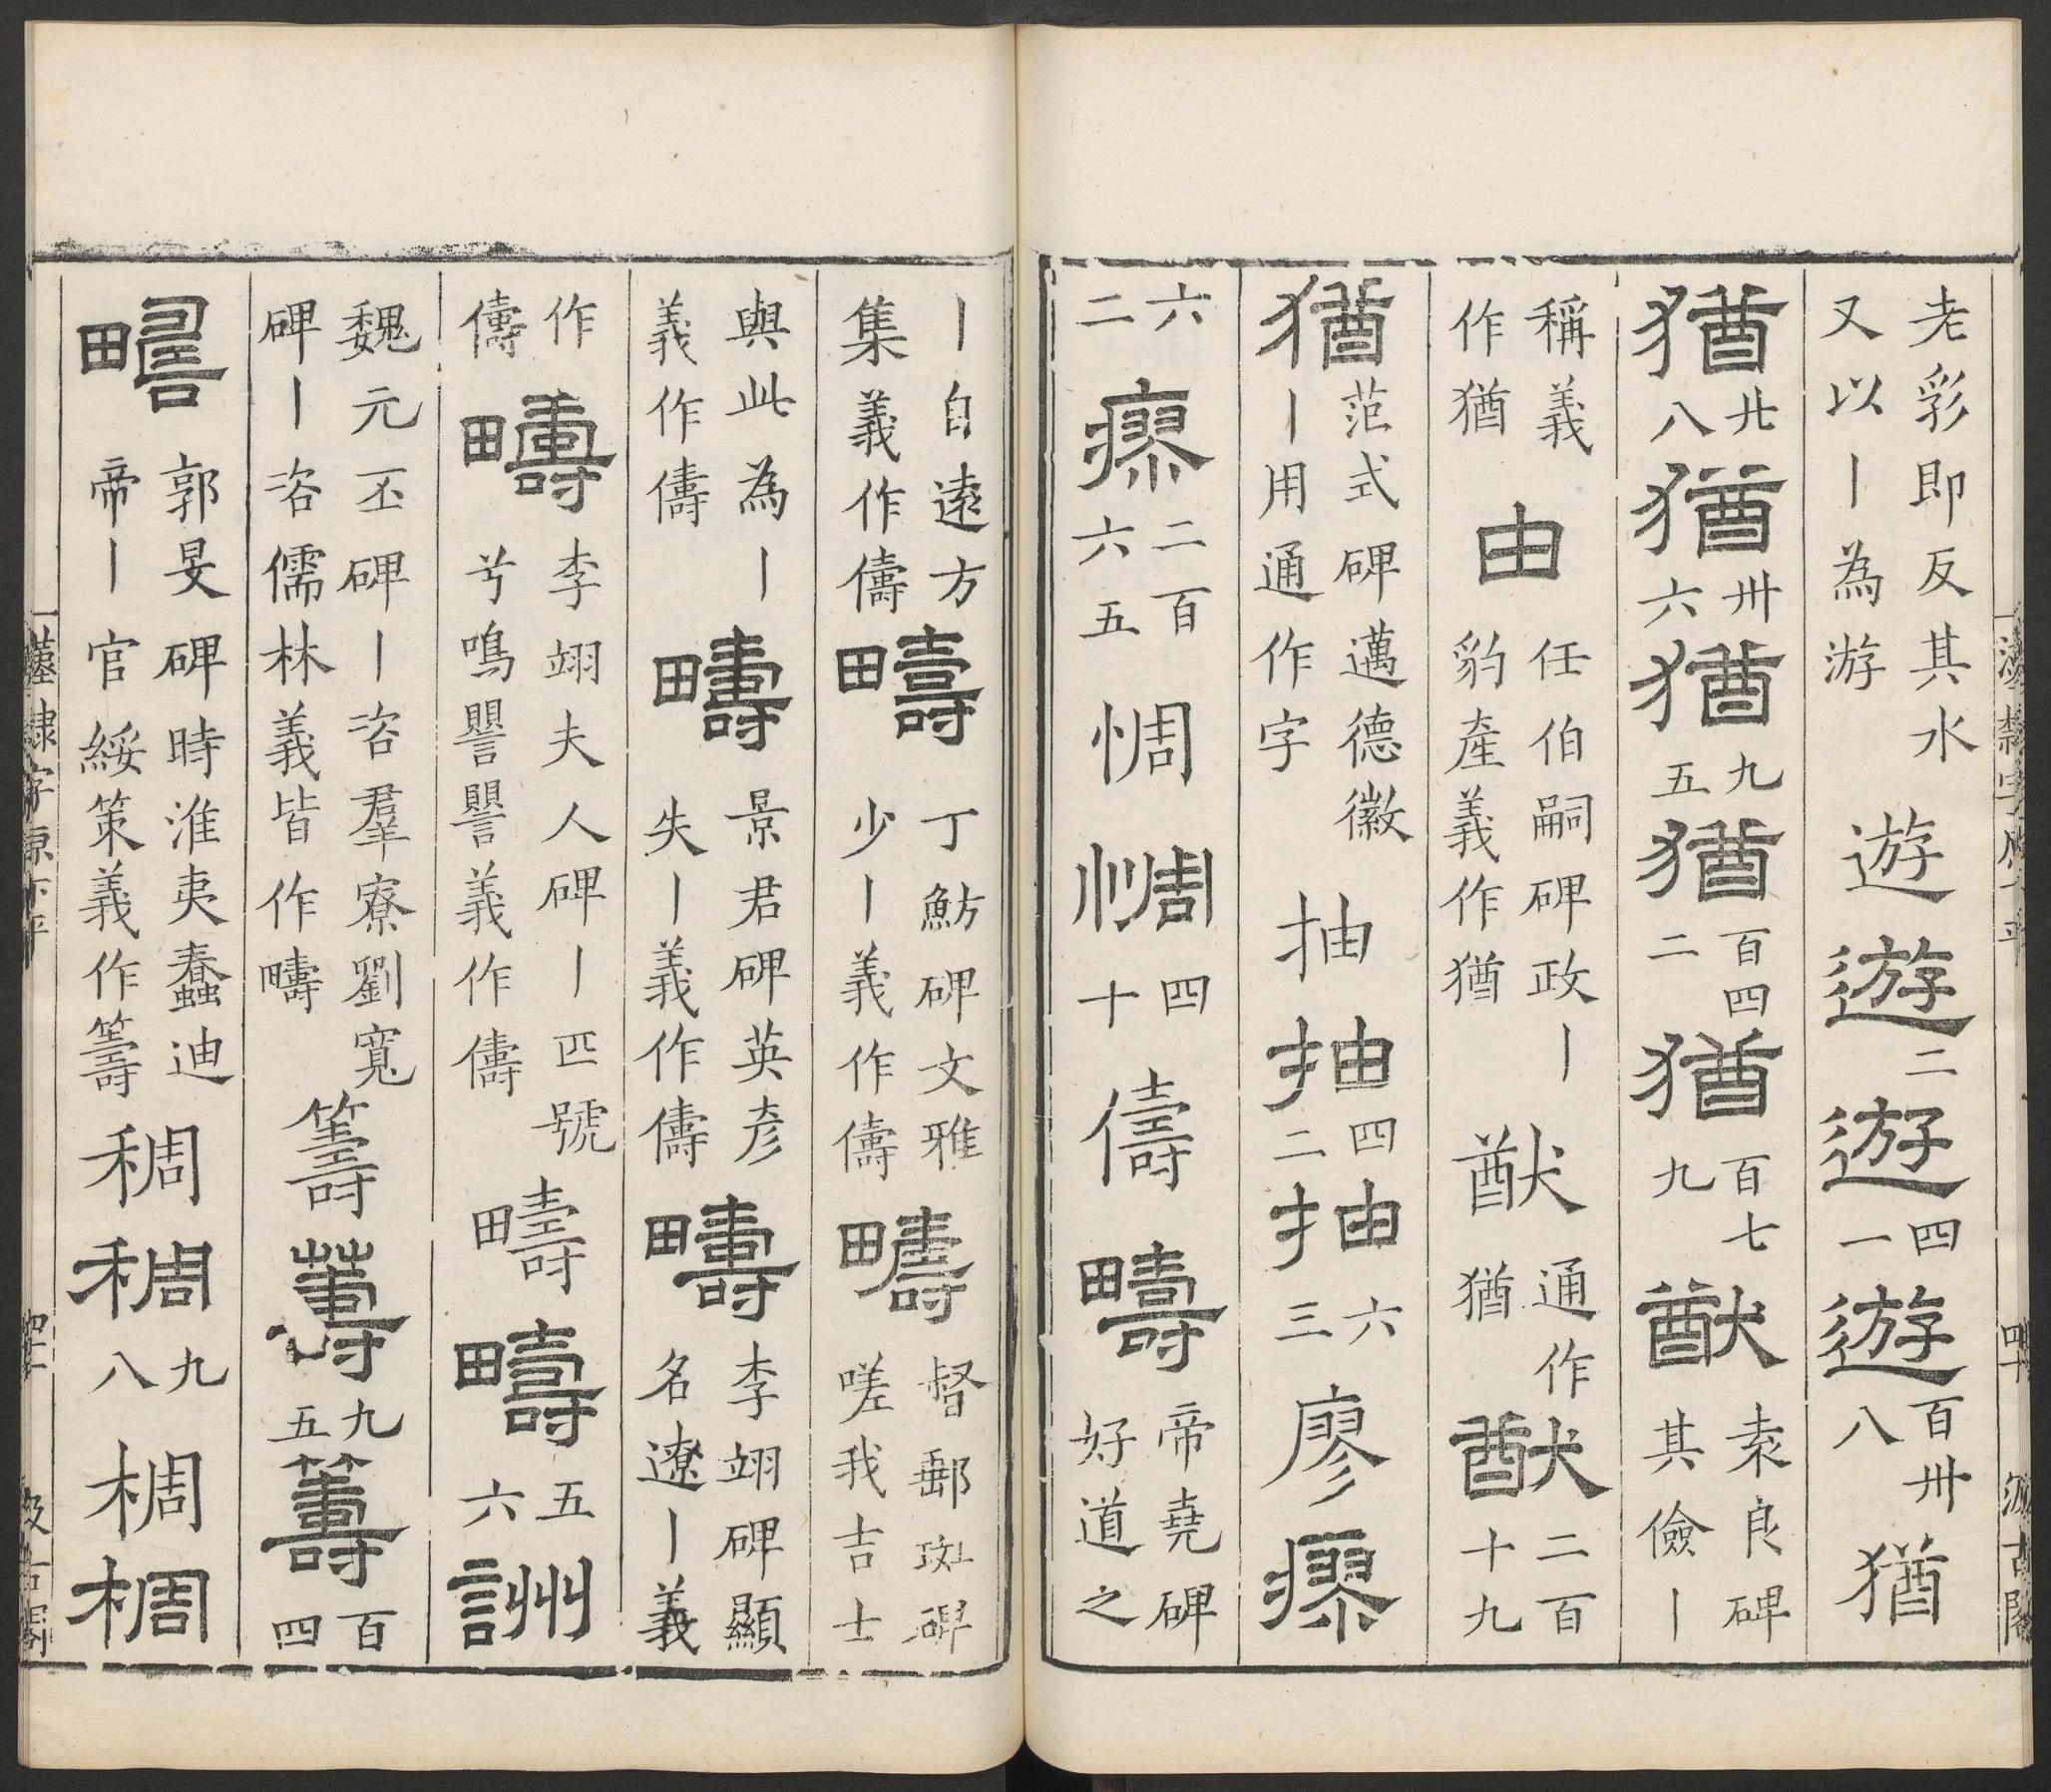 老彩即反其水又以丨為游 遊 遊 二 遊 四一 遊 百卅八 猶
猶 廿八 猶 卅六 猶 九五 猶 百四二 猶 百七九 猷 袁良碑其儉丨
稱義作猶 由 任伯嗣碑政丨豹產義作猶 猷 通作猶 猷 二百十九
猶 范式碑邁德徽丨用通作字 抽 抽 四二 抽 六三 廖 瘳
六二 瘳 二百六五 惆 惆 四十 儔 疇 帝堯碑好道之
丨自遠方集義作儔 疇 丁魴碑文雅少丨義作儔 疇 督郵斑碑嗟我吉士
與此為丨義作儔 疇 景君碑英彥失丨義作儔 疇 李翊碑顯名遼丨義
作儔 疇 李翊夫人碑丨匹號兮鳴譻譻義作儔 疇 疇 五六 詶
魏元丕碑丨咨羣寮劉寬碑丨咨儒林義皆作疇 籌 籌 九五 籌 百四
郭旻碑時淮夷蠢迪帝丨官綏策義作籌 稠 稠 九八 椆 椆
漢隸字原下平 汲古閣